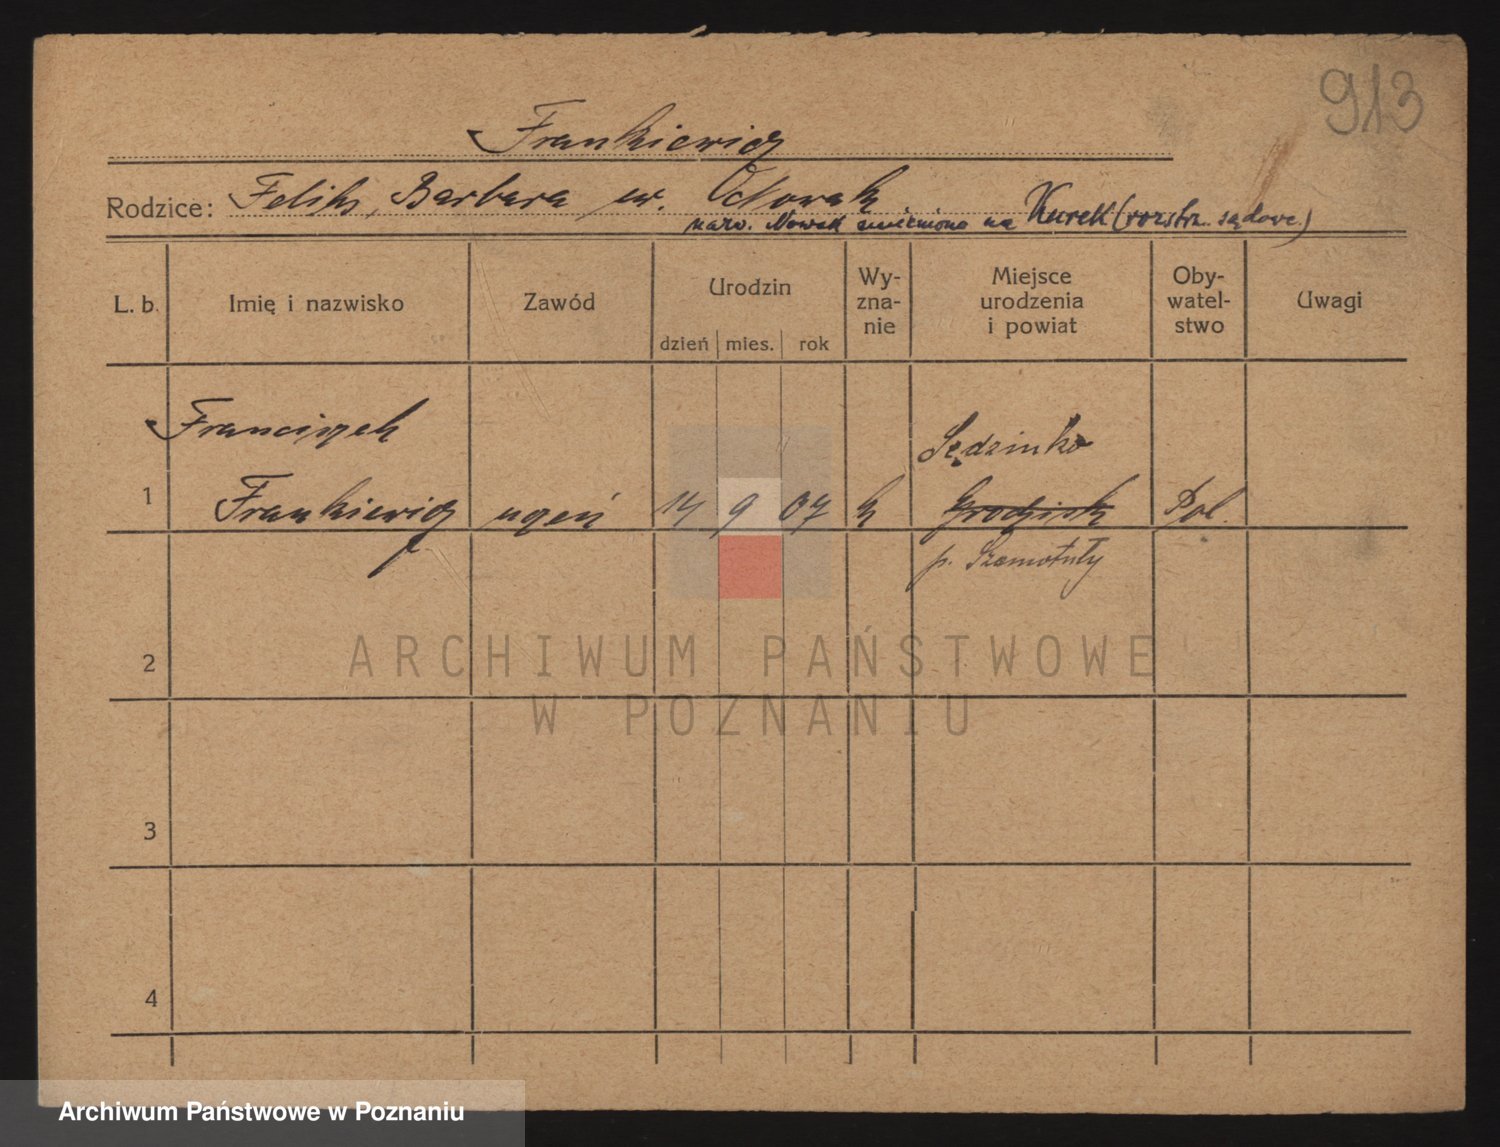 913
Frankiewicz
Rodzice: Feliks, Barbara ur. Nowak
nazw. Nowak zmieniono na Kurek (rozstrz. sądowe)
L. b. Imię i nazwisko Zawód Urodzin dzień mies. rok Wy-zna-nie Miejsce urodzenia i powiat Oby-watel-stwo Uwagi
Franciszek Sędzinko
1 Frankiewicz uczeń 14 9 07 k Grodzisk Pol.
p. Szamotuły
2
ARCHIWUM PAŃSTWOWE
W POZNANIU
3
4
Archiwum Państwowe w Poznaniu